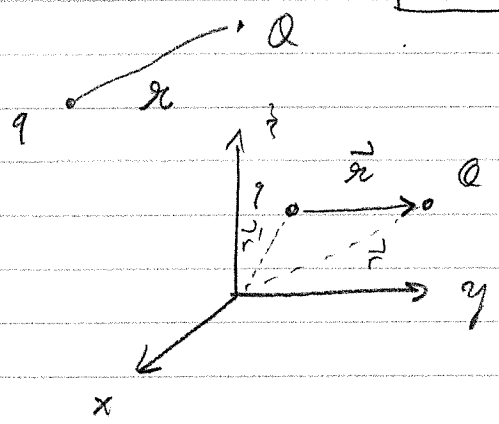 Q
q 𝓇
z
q 𝓇⃗ Q
r⃗' r⃗
y
x